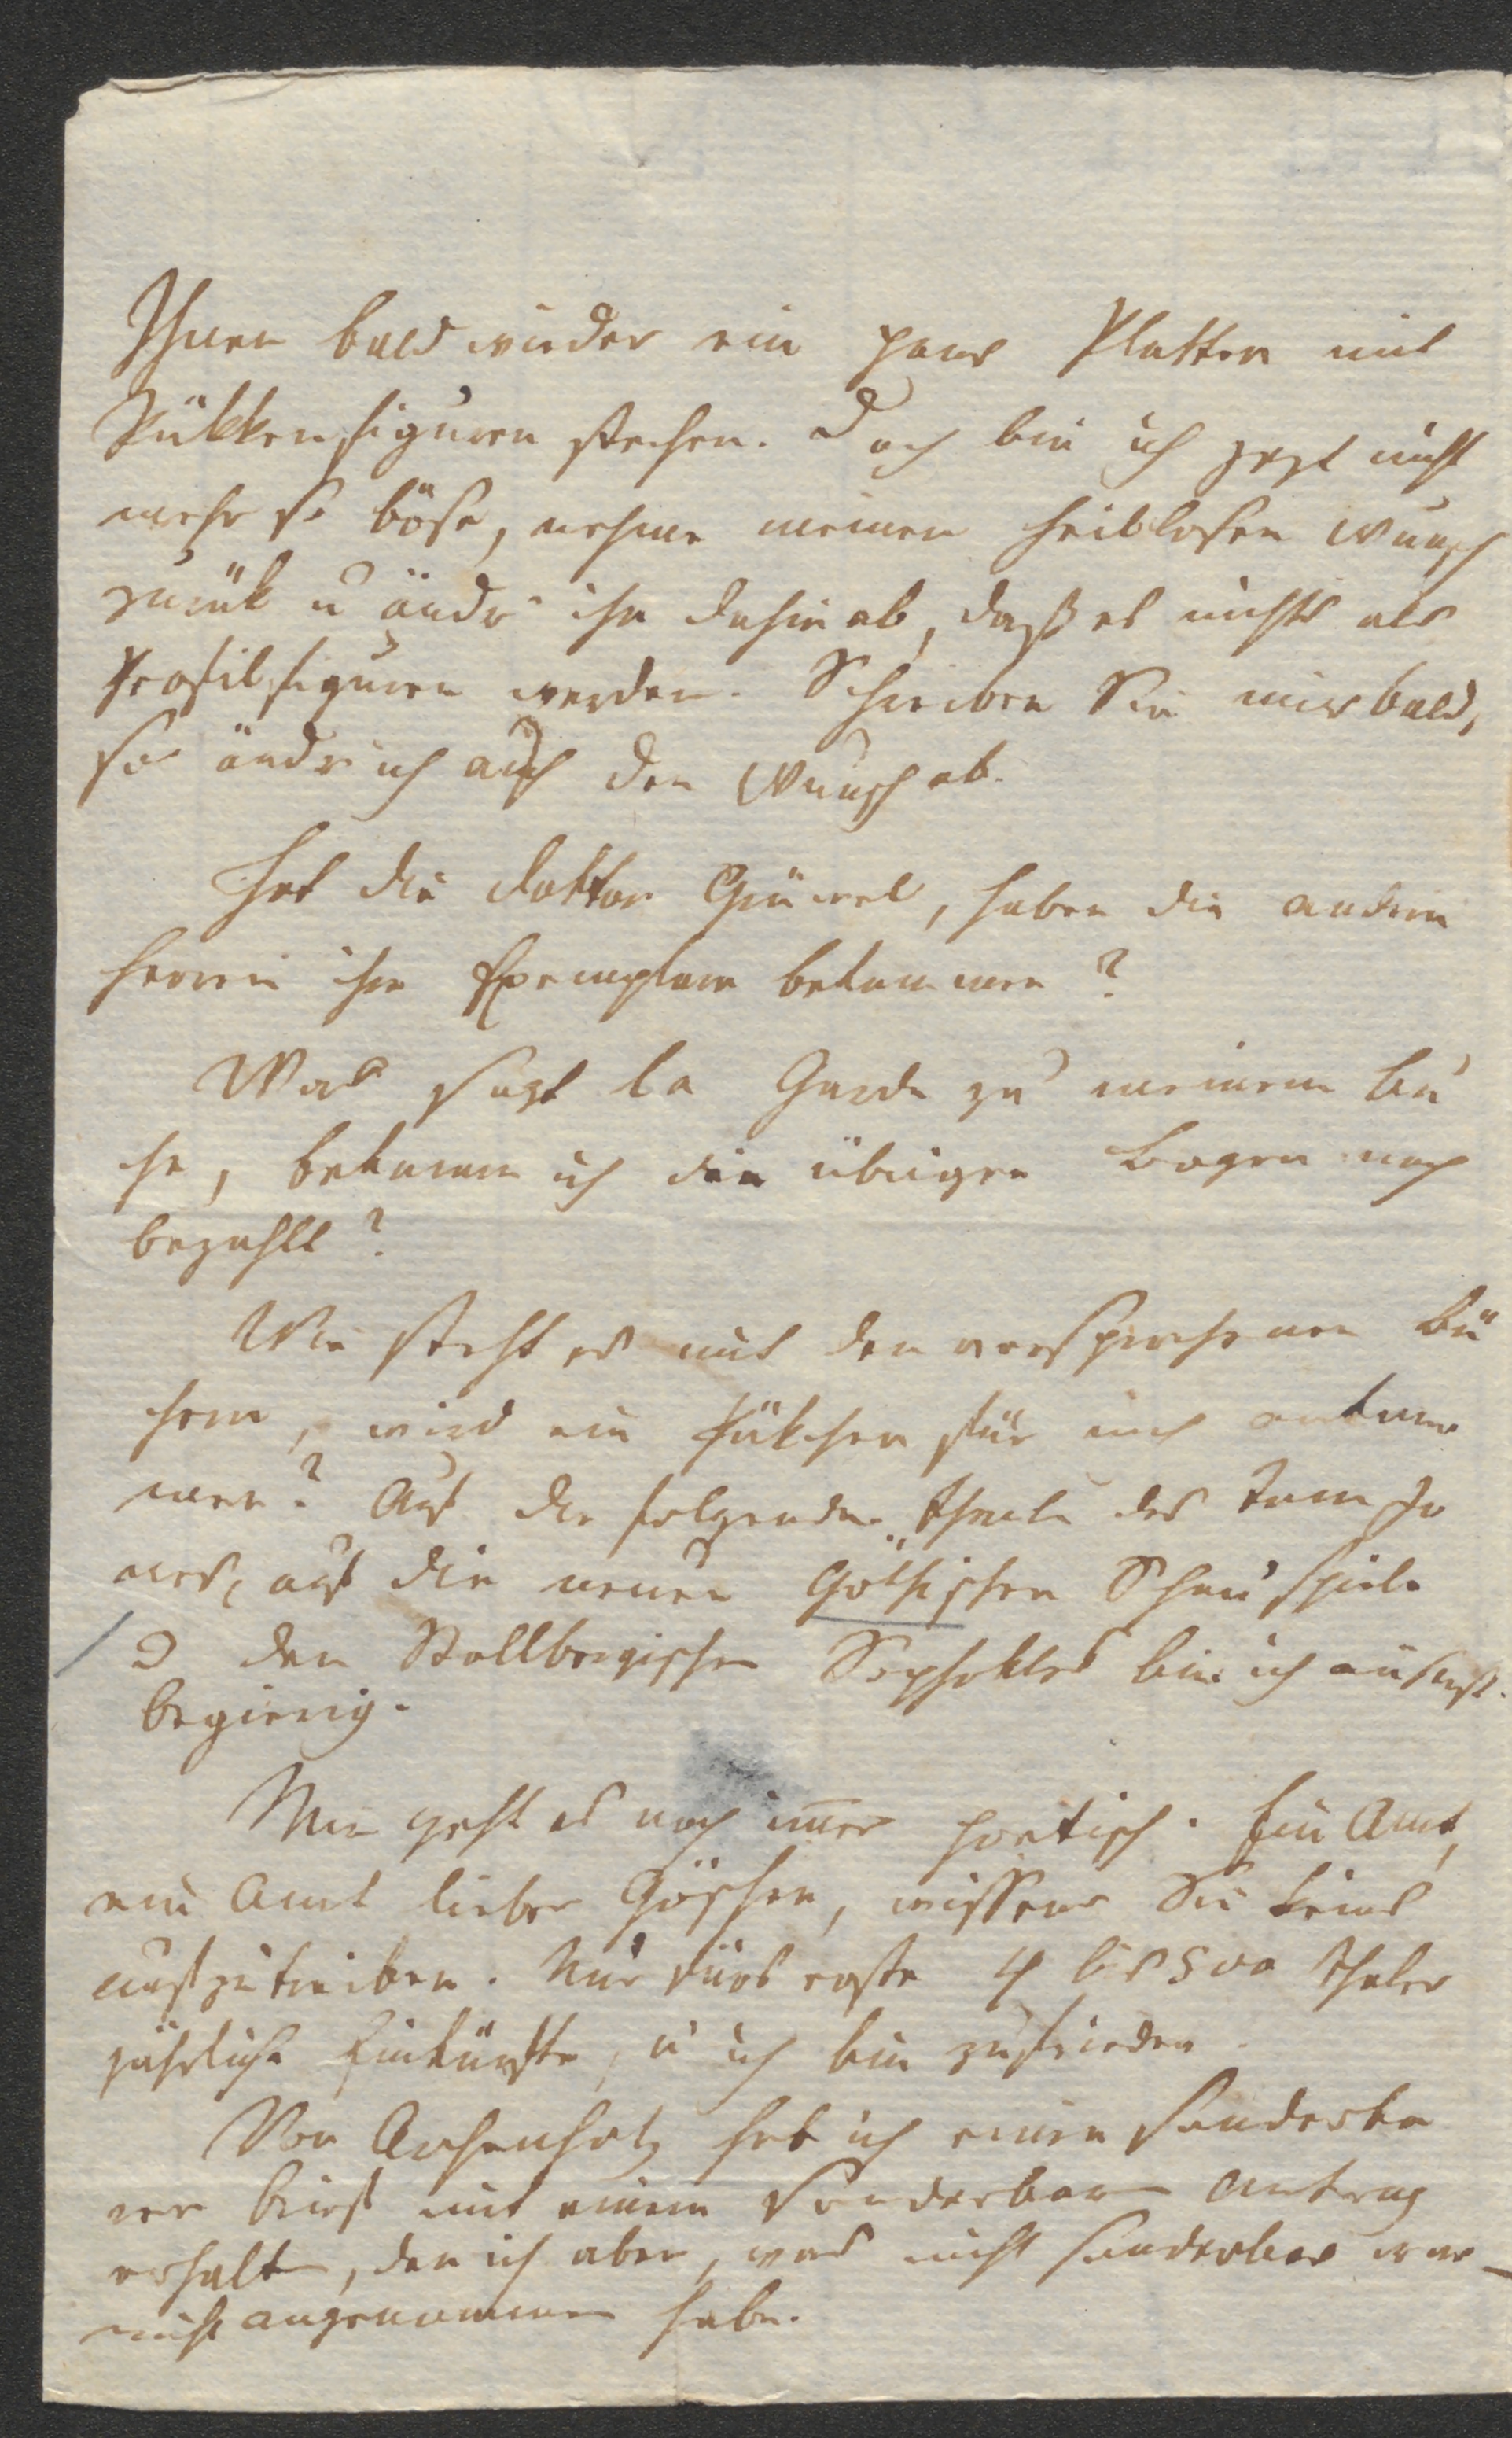 Ihnen bald wieder ein paar Platten mit
Rükkenfiguren stechen. Doch bin ich jezt nicht
mehr so böse, nehme meinen heillosen Wunsch
zurük u ändr' ihn dahin ab, daß es nichts als
Profilfiguren werden. Schreiben Sie mir bald,
so ändr ich auch den Wunsch ab.
Hat die Doktor, haben die andern
Herren ihre Exemplare bekommen?
Was sagt la Garde zu meinem Bu
che, bekomm ich die übrigen Bogen noch
bezahlt?
Wie steht es mit den versprochenen Bü
chern, wird ein Päkchen für mich ankom
men? Auf die folgenden Theile des Tom Jo
nes, auf die neuen Göthischen Schauspiele
u den Stollbergischen Sophokles bin ich äuserst
begierig.
Mir geht es noch immer poetisch. Ein Amt,
ein Amt lieber Göschen, wissen Sie keins
aufzutreiben. Nur fürs erste 4 bis 500 Thaler
jährliche Einkünfte, u ich bin zufrieden.
Von Archenholz hab ich einen sonderba
ren Brief mit einem sonderbaren Antrag
erhalten, den ich aber, was nicht sonderbar war
nicht angenommen habe.